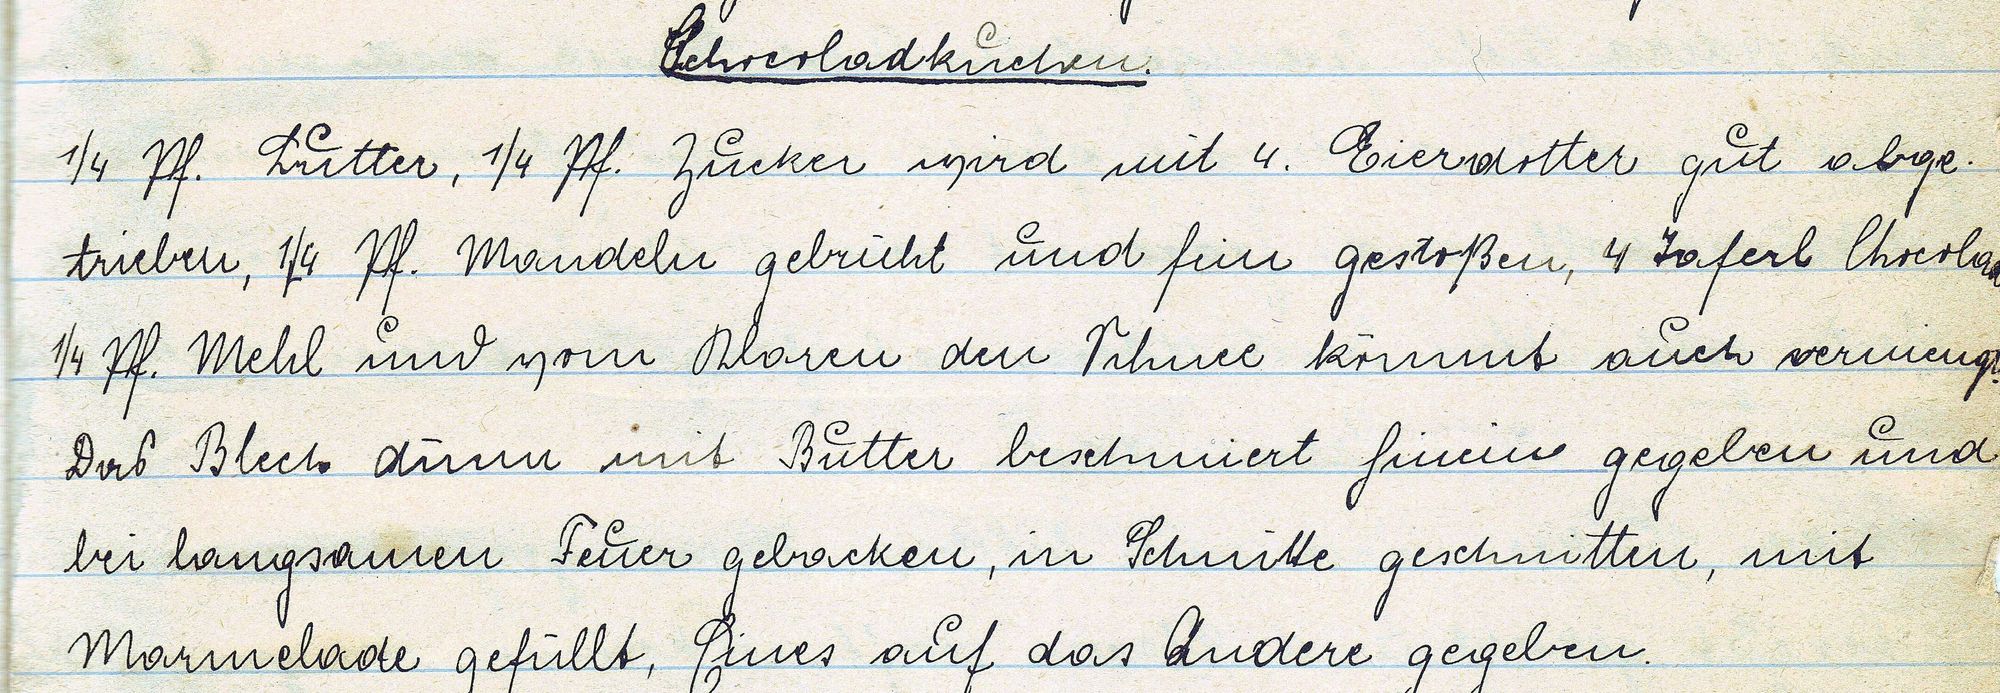 Schocoladkuchen.
1/4 Pf. Butter, 1/4 Pf. Zucker wird mit 4. Eierdotter gut abge-
trieben, 1/4 Pf. Mandeln gebrüht und fein gestoßen, 4 Taferl Chocolad
1/4 Pf. Mehl und vom Klaren den Schnee kömmt auch vermengt.
Das Blech dünn mit Butter beschmiert hinein gegeben und
bei langsamen Feuer gebacken, in Schnitte geschnitten, mit
Marmelade gefüllt, Eines auf das Andere gegeben.